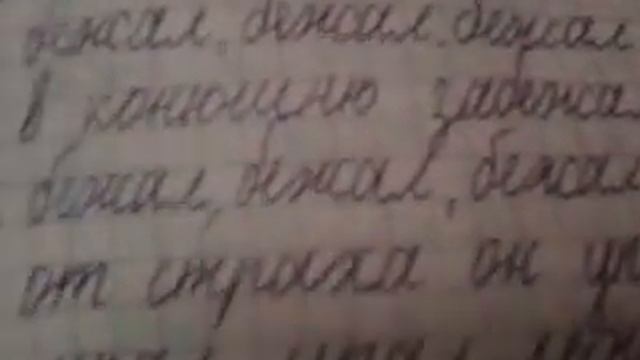 бежал, бежал, бежал
в конюшню забежа
бежал, бежал, бежал
от страха он уп